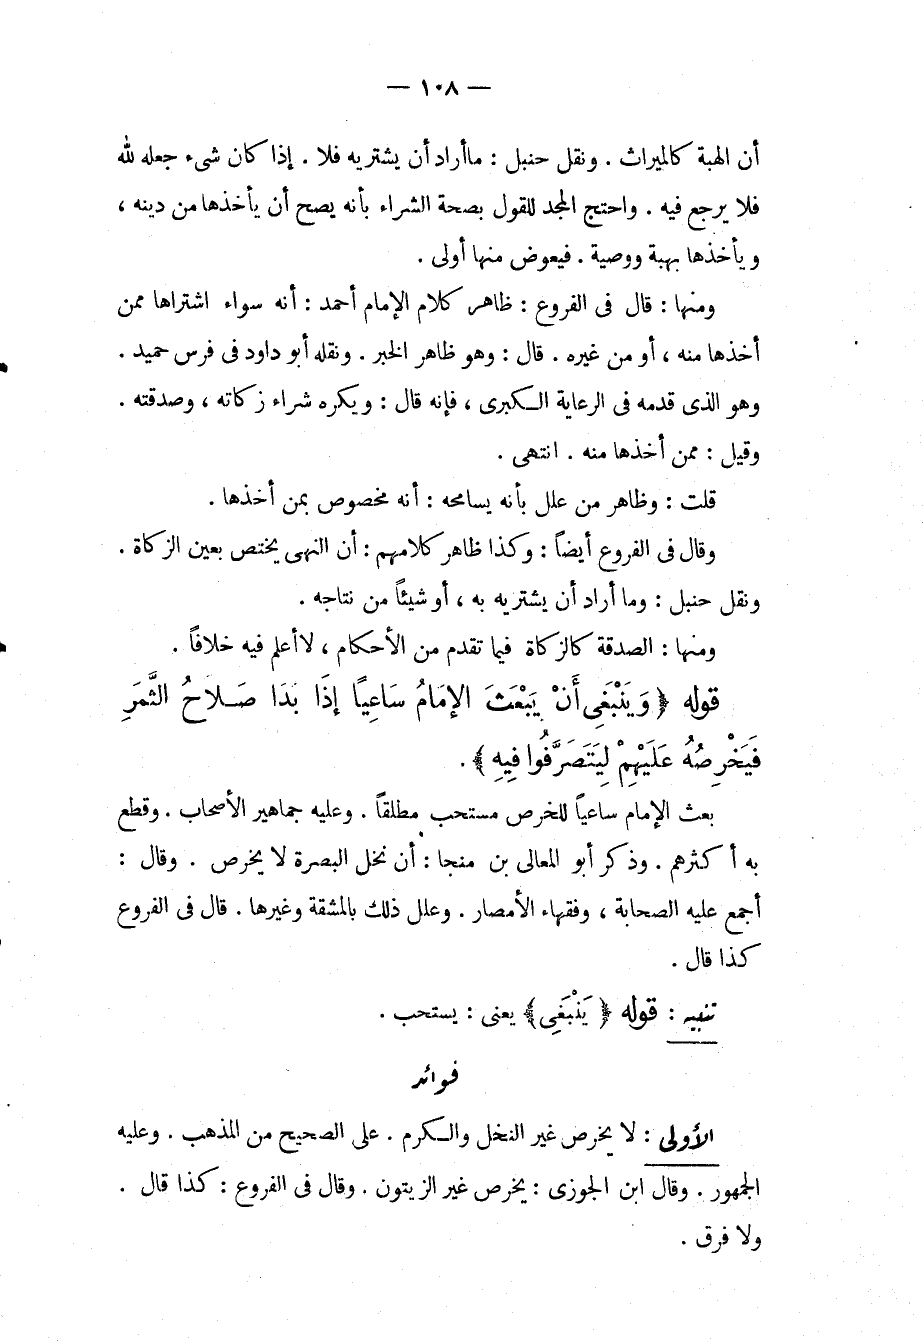 — ١٠٨ —
أن الهبة كالميراث . ونقل حنبل : ماأراد أن يشتريه فلا . إذا كان شىء جعله لله
فلا يرجع فيه . واحتج المجد للقول بصحة الشراء بأنه يصح أن يأخذها من دينه ،
ويأخذها بهبة ووصية . فيعوض منها أولى .
ومنها : قال فى الفروع : ظاهر كلام الإمام أحمد : أنه سواء اشتراها ممن
أخذها منه ، أو من غيره . قال : وهو ظاهر الخبر . ونقله أبو داود فى فرس حميد .
وهو الذى قدمه فى الرعاية الكبرى ، فإنه قال : ويكره شراء زكاته ، وصدقته .
وقيل : ممن أخذها منه . انتهى .
قلت : وظاهر من علل بأنه يسامحه : أنه مخصوص بمن أخذها .
وقال فى الفروع أيضاً : وكذا ظاهر كلامهم : أن النهى يختص بعين الزكاة .
ونقل حنبل : وما أراد أن يشتريه به ، أو شيئاً من نتاجه .
ومنها : الصدقة كالزكاة فيما تقدم من الأحكام ، لاأعلم فيه خلافاً .
قوله ﴿ وَيَنْبَغِى أَنْ يَبْعَثَ الإِمَامُ سَاعِيًا إِذَا بَدَا صَلَاحُ الثَّمَرِ
فَيَخْرِصُهُ عَلَيْهِمْ لِيَتَصَرَّفُوا فِيهِ ﴾ .
بعث الإمام ساعياً للخرص مستحب مطلقاً . وعليه جماهير الأصحاب . وقطع
به أكثرهم . وذكر أبو المعالى بن منجا : أن نخل البصرة لا يخرص . وقال :
أجمع عليه الصحابة ، وفقهاء الأمصار . وعلل ذلك بالمشقة وغيرها . قال فى الفروع
كذا قال .
تنبيه : قوله ﴿ يَنْبَغِى ﴾ يعنى : يستحب .
فوائد
الأولى : لا يخرص غير النخل والكرم . على الصحيح من المذهب . وعليه
الجمهور . وقال ابن الجوزى : يخرص غير الزيتون . وقال فى الفروع : كذا قال .
ولا فرق .